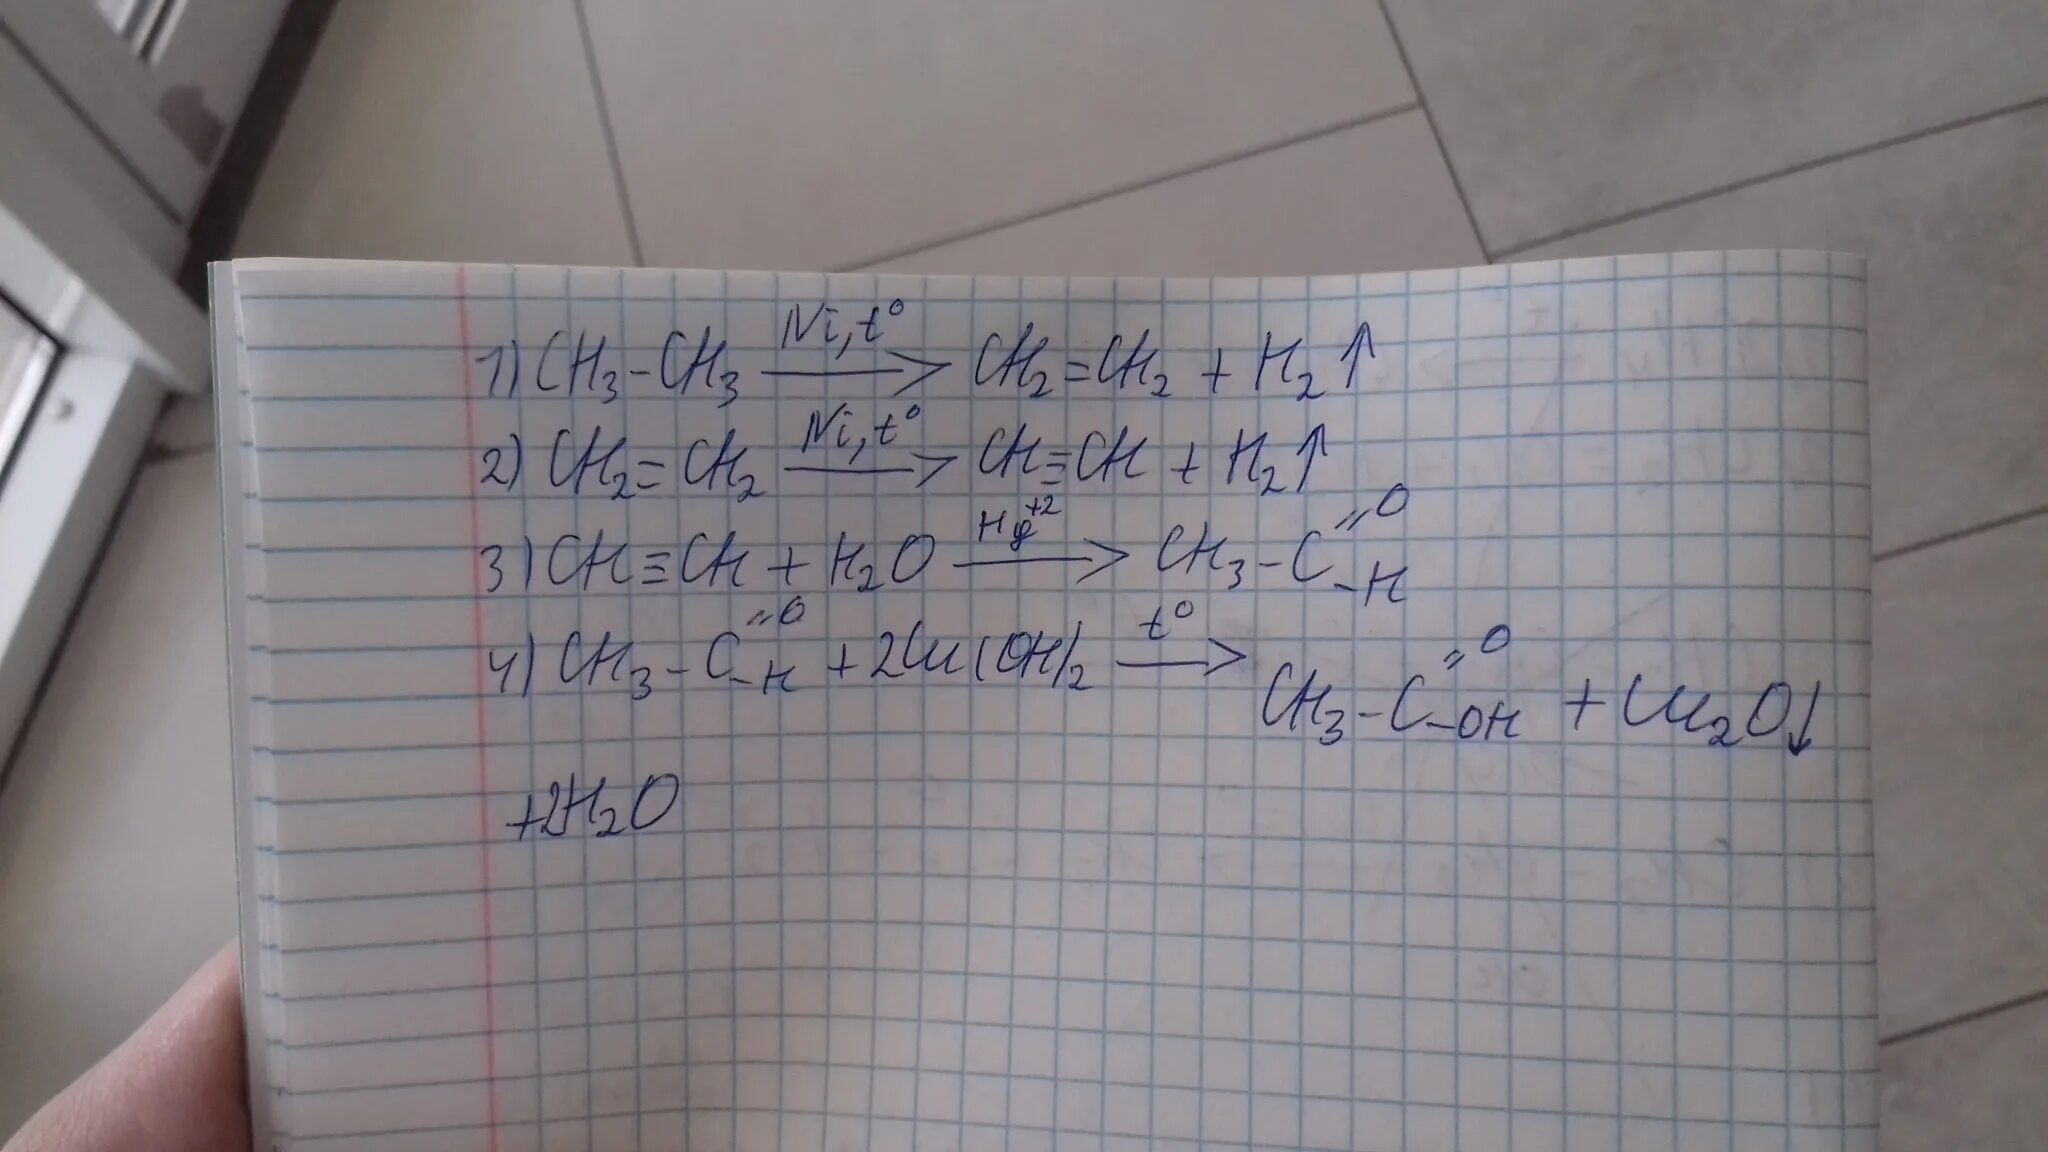 1) CH₃-CH₃ —Ni, t°→ CH₂=CH₂ + H₂↑
2) CH₂=CH₂ —Ni, t°→ CH≡CH + H₂↑
3) CH≡CH + H₂O —Hg⁺²→ CH₃-C=O-H
4) CH₃-C=O-H + 2Cu(OH)₂ —t°→ CH₃-C=O-OH + Cu₂O↓
+2H₂O